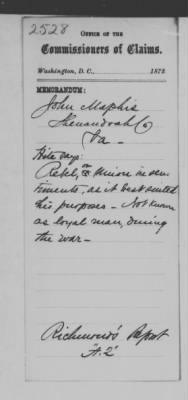 2528
OFFICE OF THE
Commissioners of Claims.
Washington, D. C., 1872
MEMORANDUM:
John Maphis
Shenandoah Co
Va
says:
Rebel, or Union in sen-
timents, as it best suited
his purposes - Not known
as loyal man, during
the war -
Richmond's Report
"A. 2"